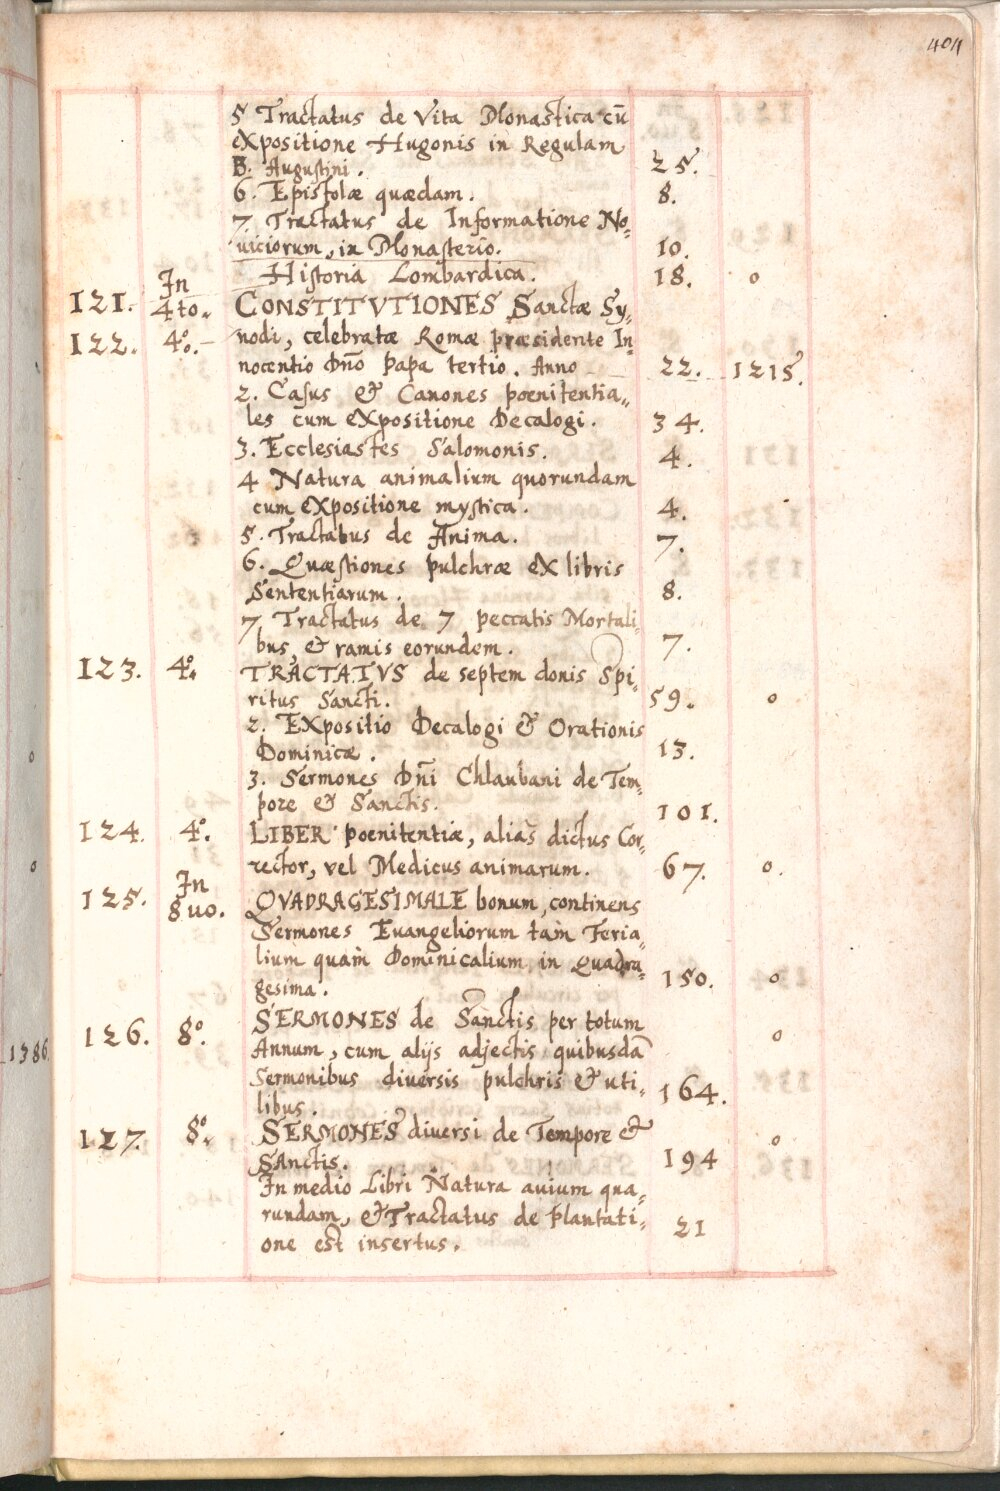 404
5 Tractatus de Vita Monastica cū
expositione Hugonis in Regulam
B. Augustini. 25.
6. Epistolæ quædam. 8.
7. Tractatus de Informatione No=
uiciorum, in Monasterio. 10.
Historia Lombardica. 18. o
121. In 4to. CONSTITVTIONES Sanctæ Sy=
122. 4º. nodi, celebratæ Romæ præsidente In=
nocentio Dño Papa tertio. Anno 22. 1215.
2. Casus & Canones pœnitentia=
les cum expositione Decalogi. 34.
3. Ecclesiastes Salomonis. 4.
4 Natura animalium quorundam
cum expositione mystica. 4.
5. Tractatus de Anima. 7.
6. Quæstiones pulchræ ex libris
Sententiarum. 8.
7. Tractatus de 7 peccatis Mortali=
bus, & ramis eorundem. 7.
123. 4º. TRACTATVS de septem donis Spi=
ritus Sancti. 59. o
2. Expositio Decalogi & Orationis
Dominicæ. 13.
3. Sermones Dñi Chlaubani de Tem=
pore & Sanctis. 101.
124. 4º. LIBER pœnitentiæ, aliàs dictus Cor=
rector, vel Medicus animarum. 67. o.
125. In 8uo. QVADRAGESIMALE bonum, continens
Sermones Euangeliorum tàm Feria=
lium quàm Dominicalium in Quadra=
gesima. 150. o
126. 8º. SERMONES de Sanctis per totum
Annum, cum alijs adjectis quibusdā o
Sermonibus diversis pulchris & uti=
libus. 164.
127. 8º. SERMONES diuersi de Tempore & o
Sanctis. 194
In medio Libri Natura auium qua=
rundam, & Tractatus de plantati=
one est insertus. 21
o
o
1386.